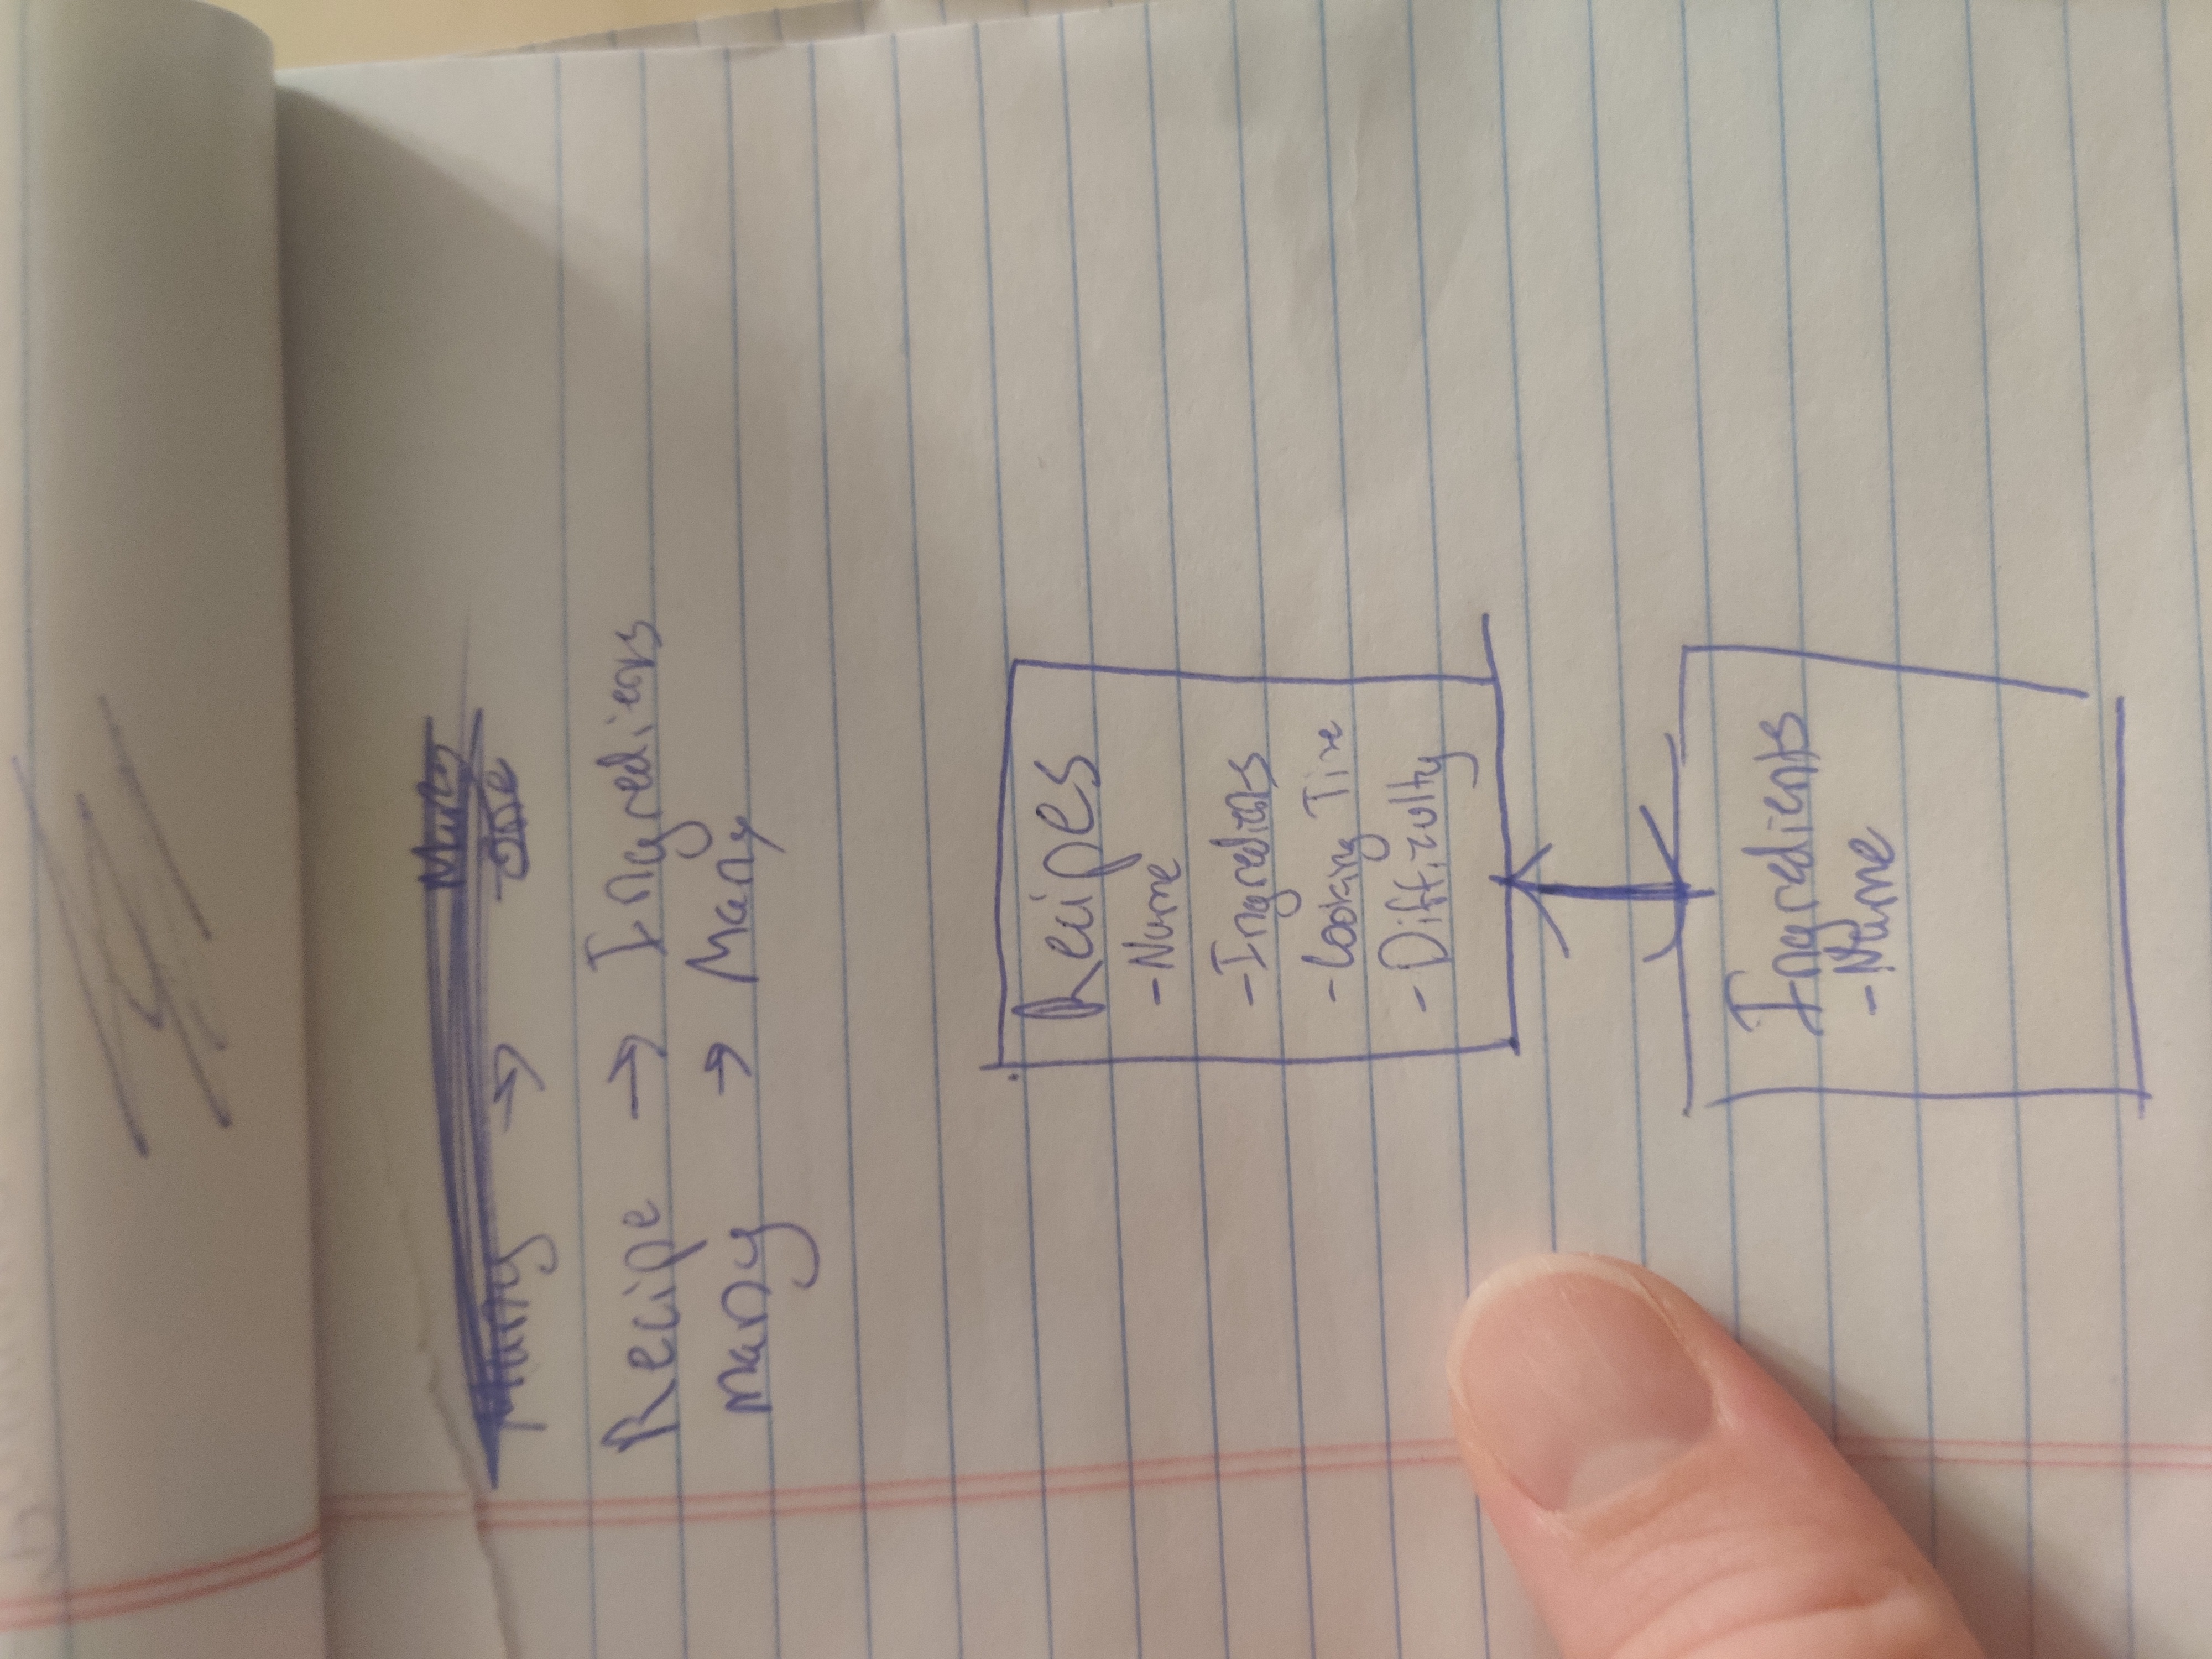 Many
Many → one
Recipe → Ingredients
many → Many
Recipes
- Name
- Ingredients
- Cooking Time
- Difficulty
Ingredients
- Name